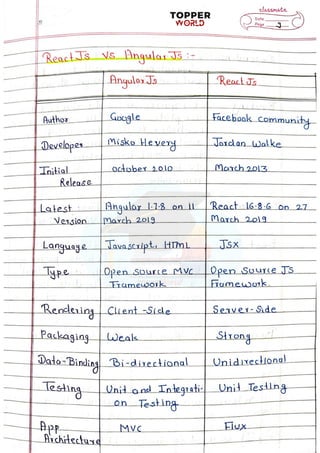 TOPPER WORLD
classmate
Date
Page 9
React Js vs Angular Js :-
Angular Js React Js
Author Google Facebook community
Developer Misko Hevery Jordan Walke
Initial Release october 2010 March 2013
Latest Version Angular 1.7.8 on 11 March 2019 React 16.8.6 on 27 March 2019
Language Javascript, HTML JSX
Type Open Source MVC Framework Open Source JS Framework
Rendering Client-Side Server-Side
Packaging Weak Strong
Data-Binding Bi-directional Unidirectional
Testing Unit and Integrati-on Testing Unit Testing
App Architecture MVC Flux